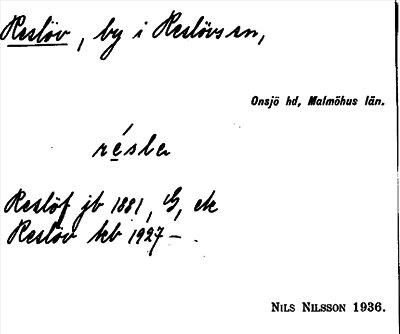 Reslöv, by i Reslövs sn,
Onsjö hd, Malmöhus län.
résla
Reslöf jb 1881, G, ek
Reslöv kb 1927 – .
Nils Nilsson 1936.